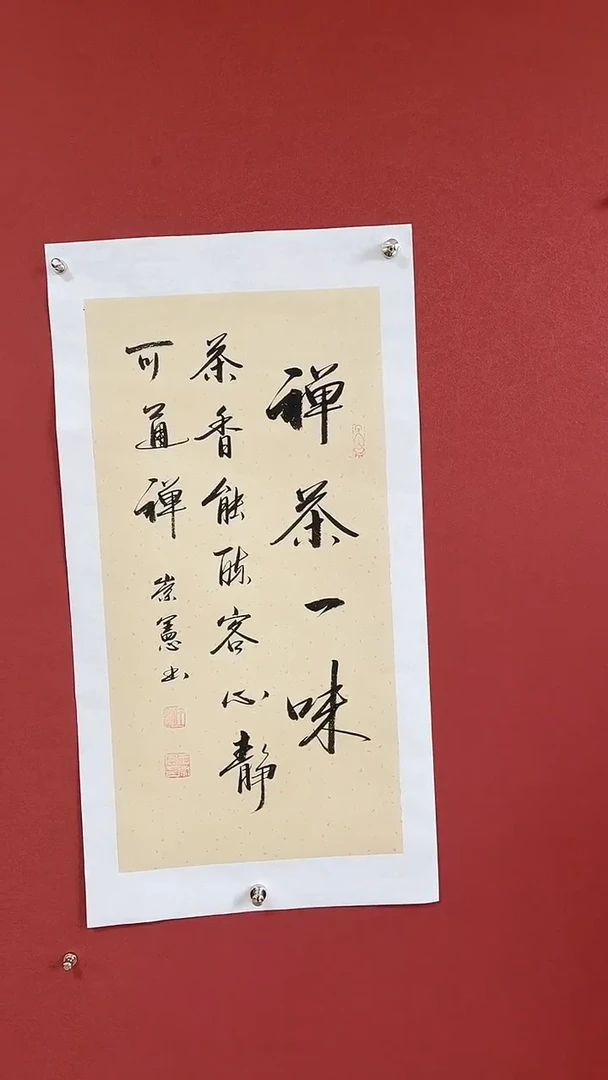 禅茶一味
茶香能醉客心静
可通禅
崇憲书